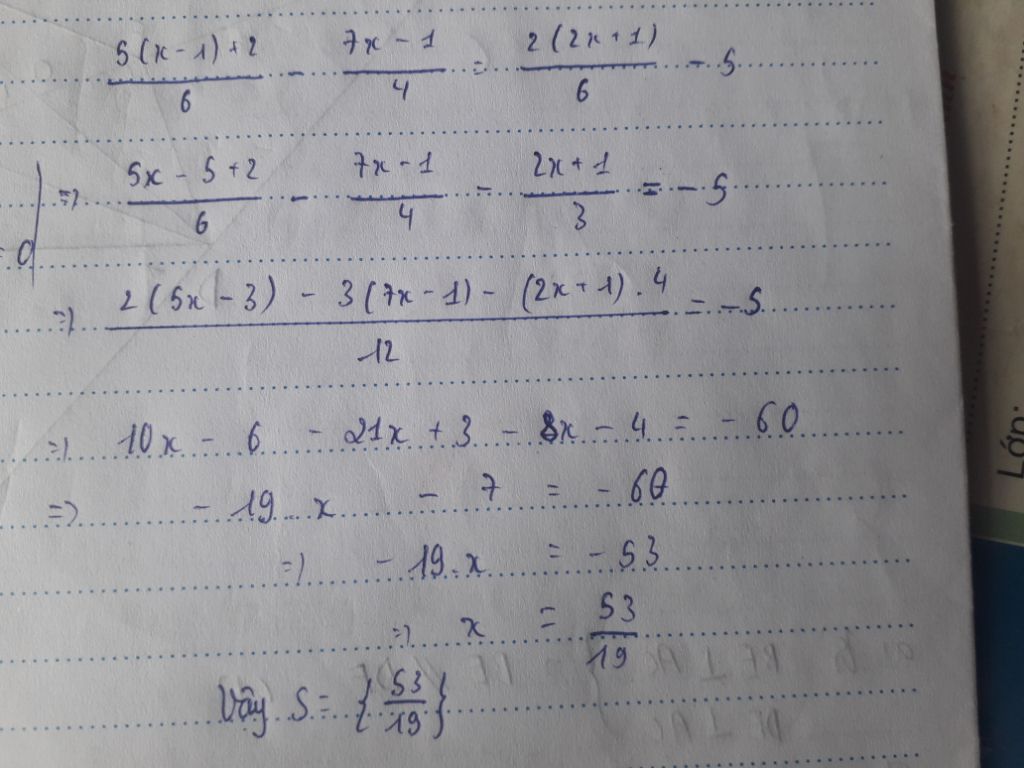 5(x-1)+2/6 - 7x-1/4 = 2(2x+1)/6 - 5
=> 5x-5+2/6 - 7x-1/4 - 2x+1/3 = -5
= 0
=> 2(5x-3) - 3(7x-1) - (2x+1).4/12 = -5
=> 10x - 6 - 21x + 3 - 8x - 4 = -60
=> -19x - 7 = -60
=> -19x = -53
=> x = 53/19
Vậy S = {53/19}
Lớp: